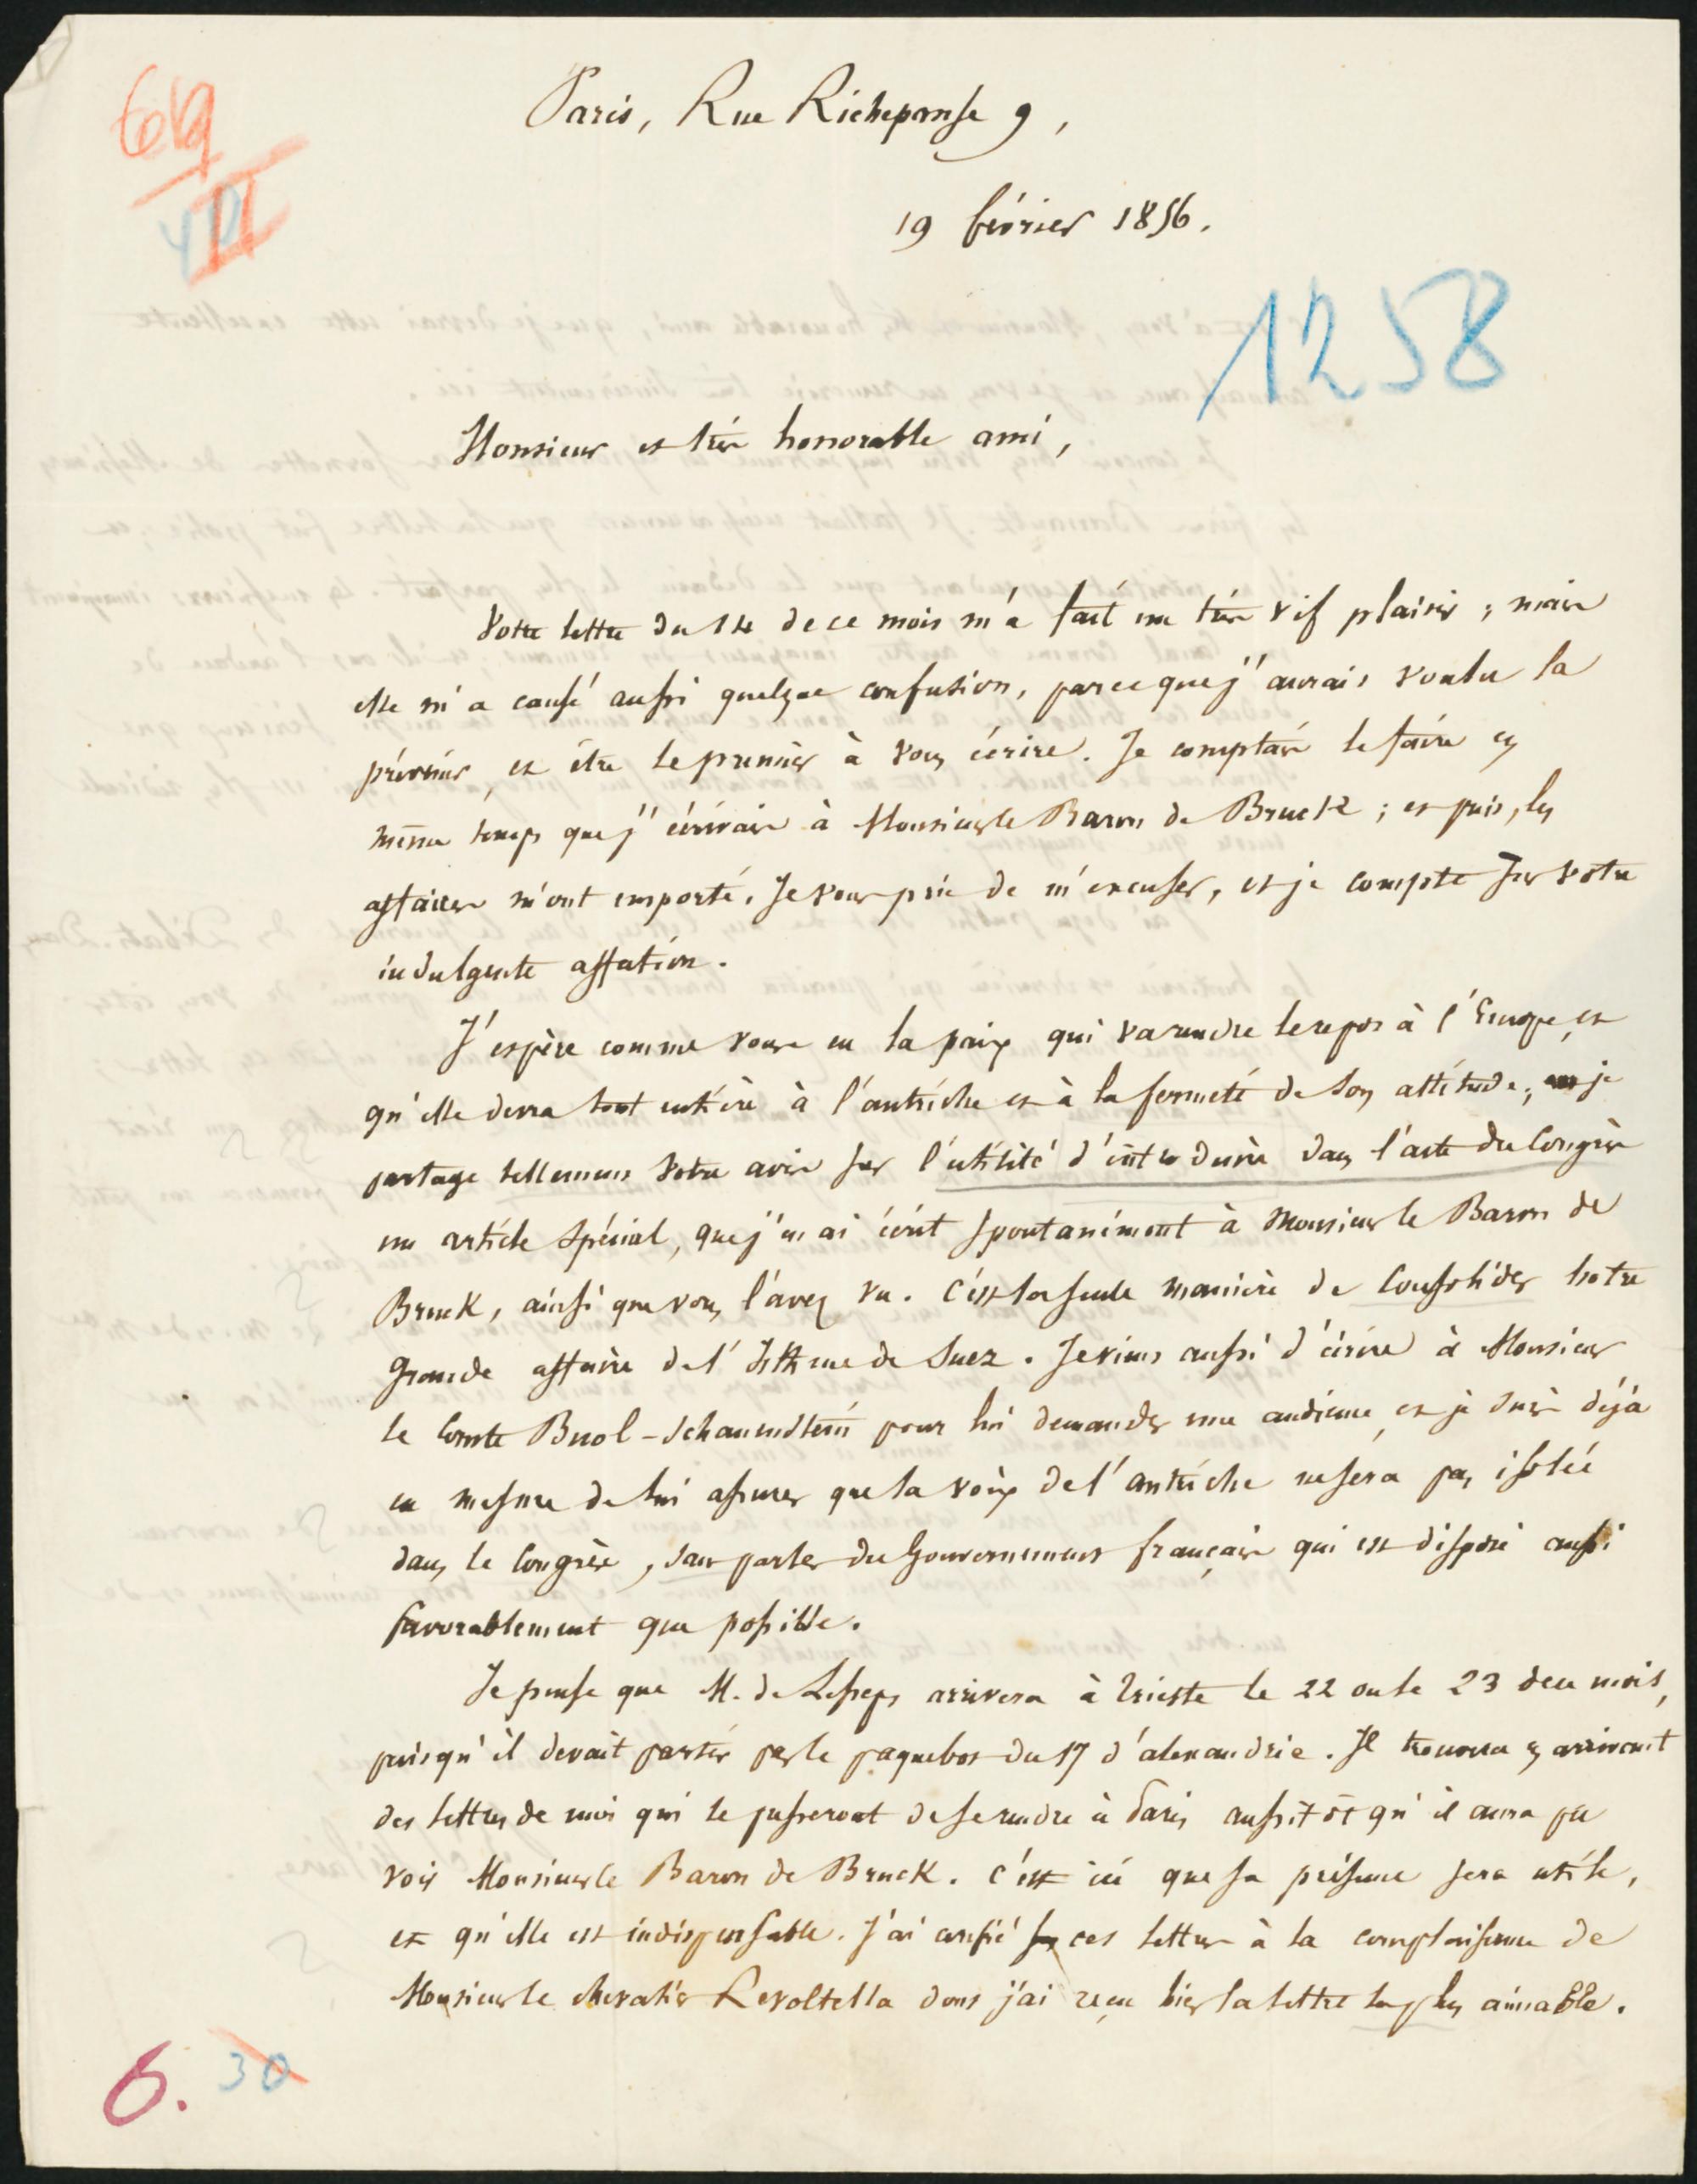 619
II
40
Paris, Rue Richepanse 9,
19 février 1856.
1258
Monsieur et très honorable ami,
Votre lettre du 14 de ce mois m'a fait un très vif plaisir ; mais
elle m'a causé aussi quelque confusion, parceque j'aurais voulu la
prévenir, et être le premier à vous écrire. Je comptais le faire en
même temps que j'écrivais à Monsieur le Baron de Bruck ; et puis, les
affaires m'ont emporté. Je vous prie de m'excuser, et je compte sur votre
indulgente affection.
J'espère comme vous en la paix qui va rendre le repos à l'Europe, et
qu'elle devra tout entière à l'autriche et à la fermeté de son attitude ; je
partage tellement votre avis sur l'utilité d'introduire dans l'acte du Congrès
un article spécial, que j'en ai écrit spontanément à Monsieur le Baron de
Bruck, ainsi que vous l'avez vu. C'est la seule manière de consolider notre
grande affaire de l'Isthme de Suez. Je viens aussi d'écrire à Monsieur
le Comte Buol-Schauenstein pour lui demander une audience, et je suis déjà
en mesure de lui assurer que la voix de l'autriche ne sera pas isolée
dans le Congrès, sans parler du Gouvernement français qui est disposé aussi
favorablement que possible.
Je pense que M. de Lesseps arrivera à Trieste le 22 ou le 23 de ce mois,
puisqu'il devait partir par le paquebot du 17 d'alexandrie. Il trouvera en arrivant
des lettres de moi qui le presseront de se rendre à Paris aussitôt qu'il aura pu
voir Monsieur le Baron de Bruck. C'est ici que sa présence sera utile,
et qu'elle est indispensable. J'ai confié ces lettres à la complaisance de
Monsieur le chevalier Revoltella dont j'ai reçu hier la lettre la plus aimable.
6. 30